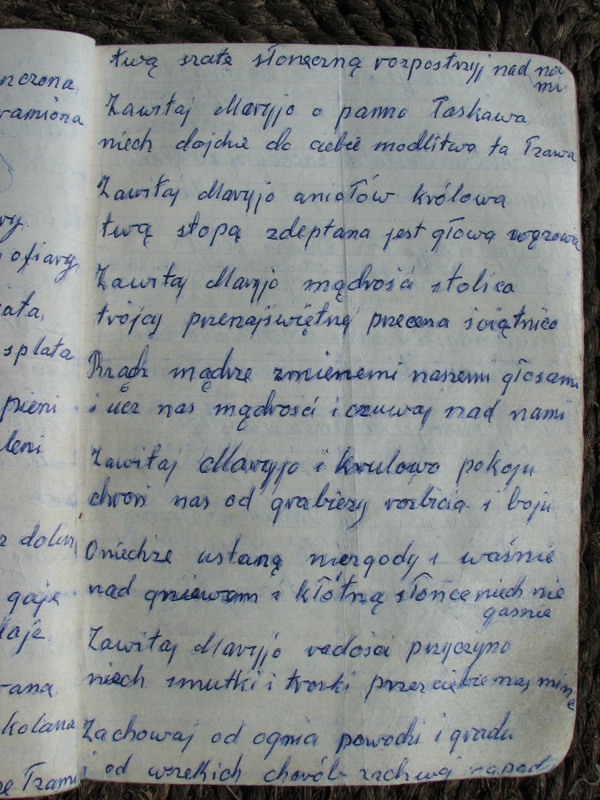 nczona,
ramiona
wy
ofiary
iata,
splata
pieni
leni
z dolin,
gaje
daje.
rana
kolana
ze Trami
twą szatę słoneczną rozpostrzyj nad na
mi
Zawitaj Maryjo o panno Łaskawa
niech dojdzie do ciebie modlitwa ta Łzawa
Zawitaj Maryjo aniołów królowa
twą stopą zdeptana jest głowa wężowa
Zawitaj Maryjo mądrość stolico
trójcy przenajświętrzej
Rządź mądrze zmiennemi naszemi głosami
i ucz nas mądrości i czuwaj nad nami
Zawitaj Maryjo i krulowo pokoju
chroń nas od grabieży rozbicia i boju
Oniechże ustaną niezgody i waśnie
nad gniewem i kłótnią słońce niech nie
gaśnie
Zawitaj Maryjo radości przyczyno
niech smutki i troski przez ciebie nas miną
Zachowaj od ognia powodzi i gradu
i od wszelkich chorób zachowaj